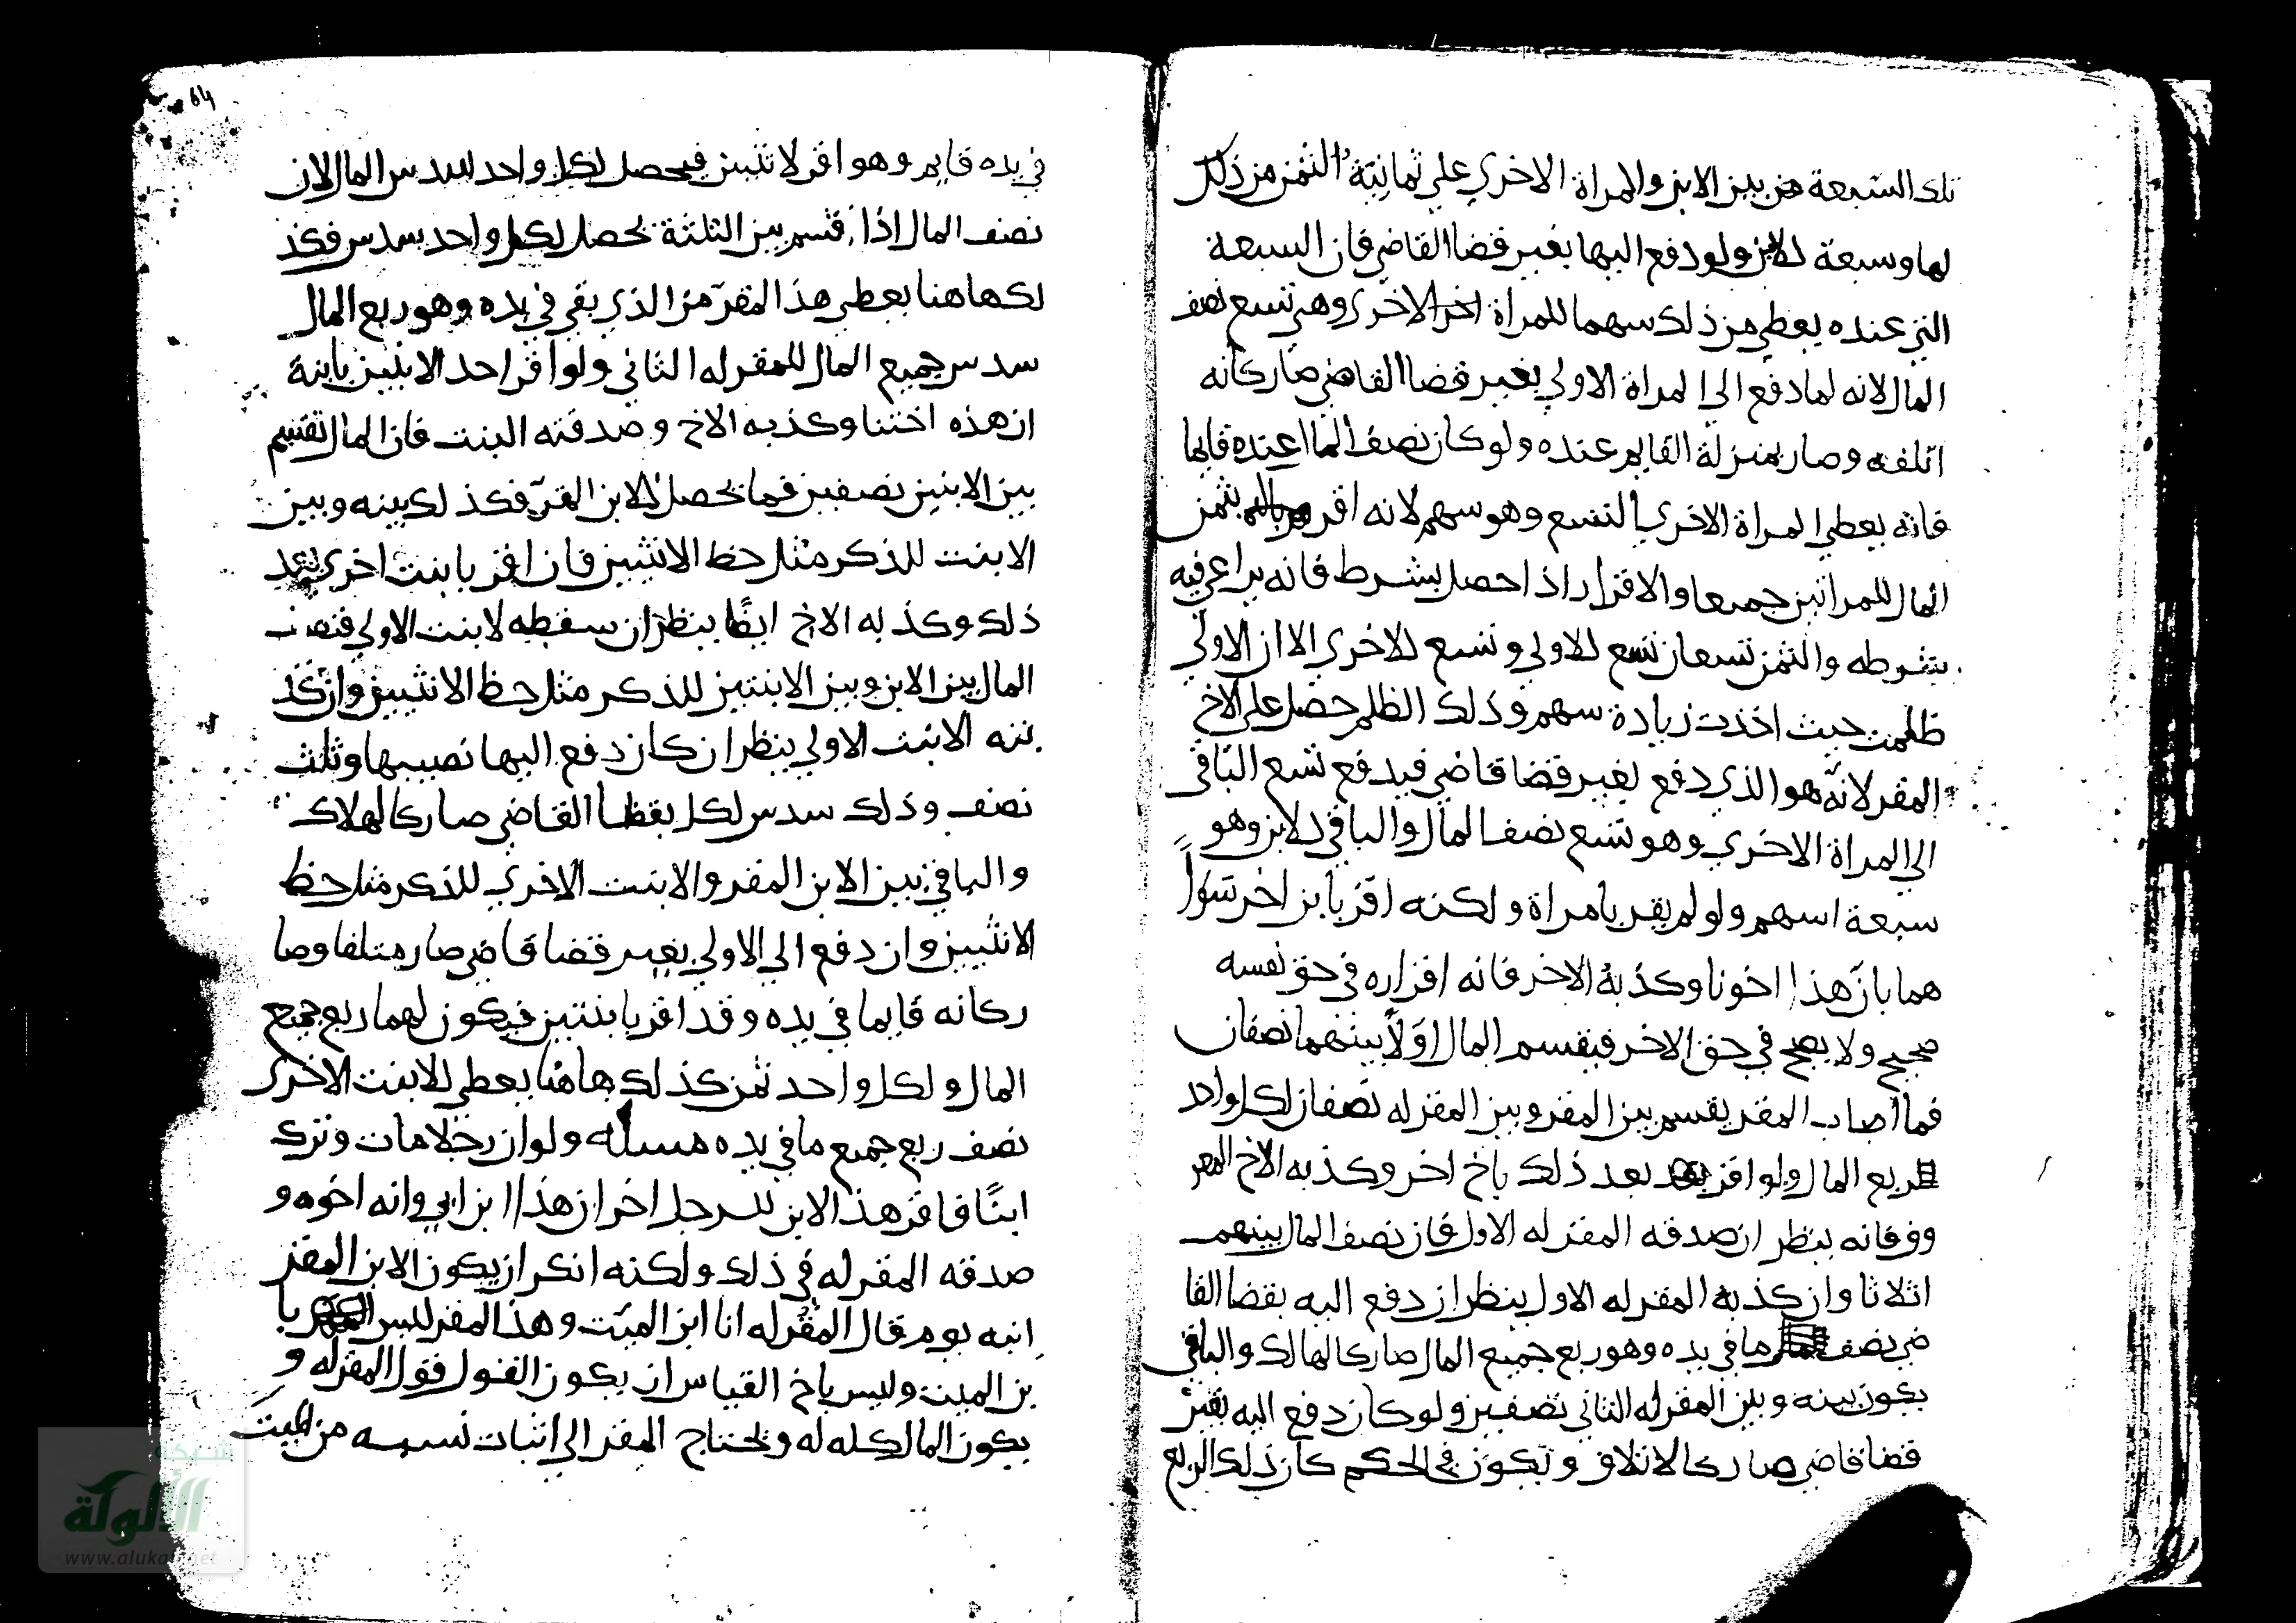 تلك السبعة من بين الابن والمراة الاخري علي ثمانية الثمن من ذلك
لها وسبعة للابن ولو دفع اليها بغير قضا القاضي فان السبعة
التي عنده يعطي من ذلك سهما للمراة الاخري وهي تسع نصف
المال لانه لما دفع الي المراة الاولي بغير قضا القاضي صار كانه
اتلفه وصار بمنزلة القايم عنده ولو كان نصف المال عنده قايما
فانه يعطي المراة الاخري التسع وهو سهم لانه اقر بثمن
المال للمراتين جميعا والاقرار اذا حصل بشرط فانه يراعي فيه
بشرطه والثمن تسعان تسع للاولي وتسع للاخري الا ان الاولي
ظلمت حيث اخذت زيادة سهم وذلك الظلم حصل علي الاخ
المقر لانه هو الذي دفع بغير قضا قاضي فيدفع تسع الباقي
الي المراة الاخري وهو تسع نصف المال والباقي للابن وهو
سبعة اسهم ولو لم يقر بامراة ولكنه اقر بابن اخر سوا
هما بان هذا اخونا وكذبه الاخر فانه اقراره في حق نفسه
صحيح ولا يصح في حق الاخر فيقسم المال اولا بينهما نصفان
فما اصاب المقر يقسم بين المقر وبين المقر له نصفان لكل واحد
ربع المال ولو اقر بعد ذلك باخ اخر وكذبه الاخ المعر
وف فانه ينظر ان صدقه المقر له الاول فان نصف المال بينهم
اثلاثا وان كذبه المقر له الاول ينظر ان دفع اليه بقضا القا
ضي نصف ما في يده وهو ربع جميع المال صار كالهالك والباقي
يكون بينه وبين المقر له الثاني نصفين ولو كان دفع اليه بغير
قضا قاضي صار كالاتلاف وتكون في الحكم كان ذلك الربع
64
في يده قايم وهو اقر لاثنين فيحصل لكل واحد سدس المال لان
نصف المال اذا قسم بين الثلثة يحصل لكل واحد سدس فكذ
لك هاهنا يعطي هذا المقر من الذي بقي في يده وهو ربع المال
سدس جميع المال للمقر له الثاني ولو اقر احد الابنين بابنة
ان هذه اختنا وكذبه الاخ وصدقته البنت فان المال تقسم
بين الابنين نصفين فما يحصل للابن المقر فكذلك بينه وبين
الابنت للذكر مثل حظ الانثيين فان اقر بابنت اخري بعد
ذلك وكذبه الاخ ايضا ينظر ان لابنت الاولي فنصف
المال بين الابن وبين الابنتين للذكر مثل حظ الانثيين وان كذ
بته الابنت الاولي ينظر ان كان دفع اليها نصيبها وثلث
نصف وذلك سدس لكل بقضا القاضي صار كالهلاك
والباقي بين الابن المقر والابنت الاخري للذكر مثل حظ
الانثيين وان دفع الي الاولي بغير قضا قاضي صار متلفا وصا
ركانه قايما في يده وقد اقر بابنتين فيكون لهما ربع جميع
المال ولكل واحد ثمن كذلك هاهنا يعطي للابنت الاخري
نصف ربع جميع ما في يده مسئلة ولو ان رجلا مات وترك
ابنا فاقر هذا الابن للرجل اخر ان هذا ابن ابي وانه اخوه و
صدقه المقر له في ذلك ولكنه انكر ان يكون الابن المقر
انبه يوم قال المقر له انا ابن الميت وهذا المقر ليس با
بن الميت وليس باخ القياس ان يكون القول قول المقر له و
يكون المال كله له ويحتاج المقر الي اثبات نسبه من الميت
شبكة
الألوكة
www.alukah.net